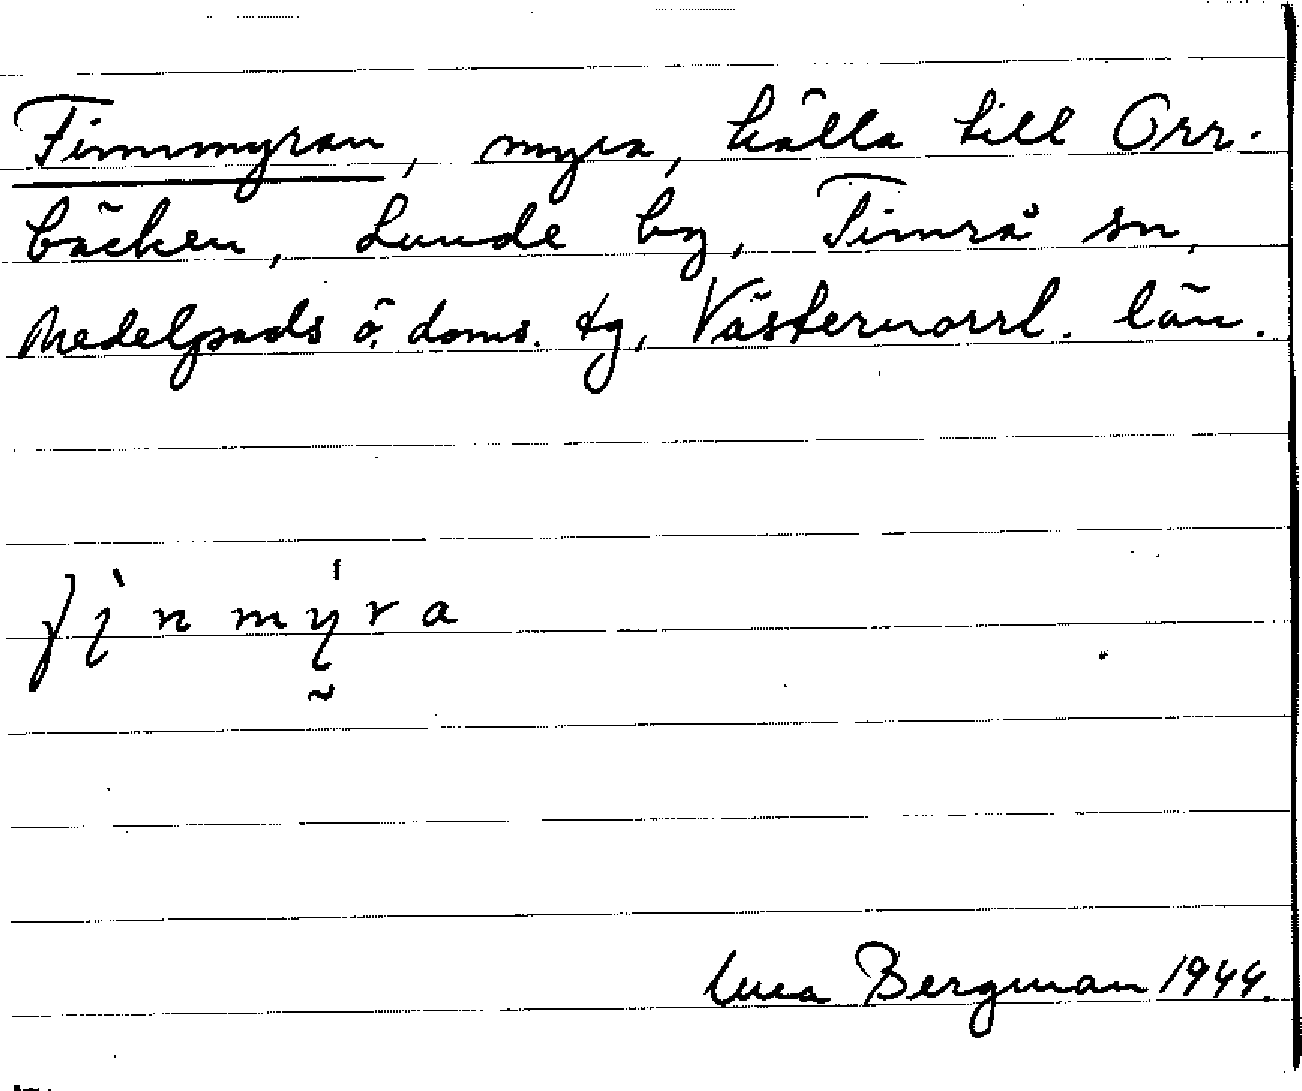 Finnmyran, myra, källa till Orr-
bäcken, Lunde by, Timrå sn,
Medelpads ö. doms. tg, Västernorrl. län.
fì̖nmý̖ra
Bergman 1944.